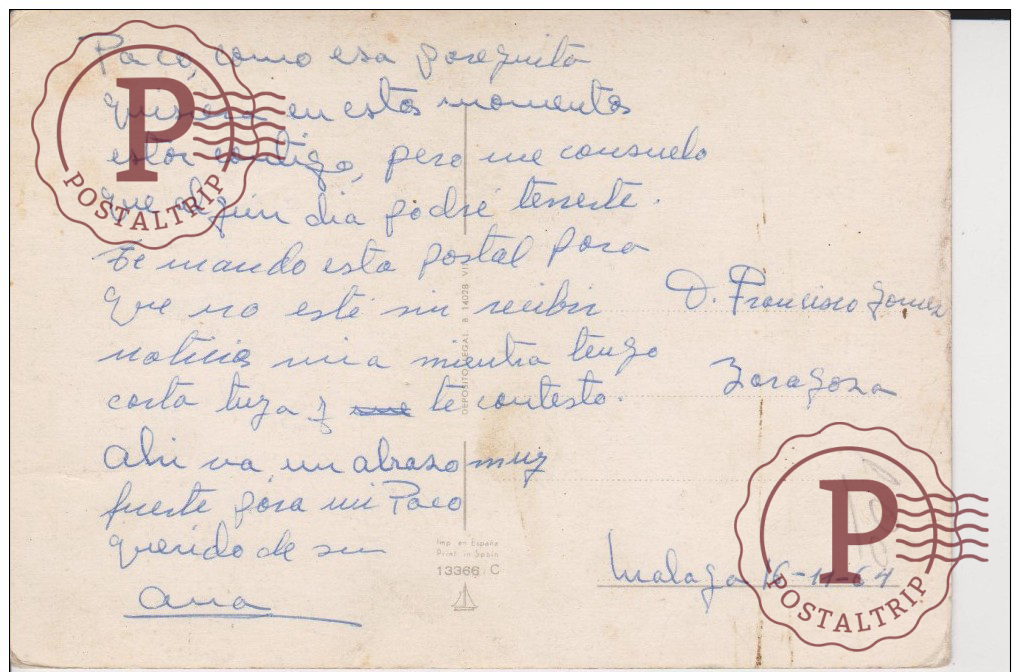 Paco, como esa pareguita
quisiera en estos momentos
estar contigo, pero me consuelo
que algún dia podré tenerte.
te mando esta postal para
que no esté sin recibir
noticias mia mientra tengo
carta tuya y te contesto.
Ahi va un abraso muy
fuerte para mi Paco
querido de su
Ana
D. Francisco Gomez
Zaragoza
Malaga 16-11-64
DEPOSITO LEGAL B. 14028 VII
Imp. en España
Print. in Spain
13366 C
P
POSTALTRIP
P
POSTALTRIP